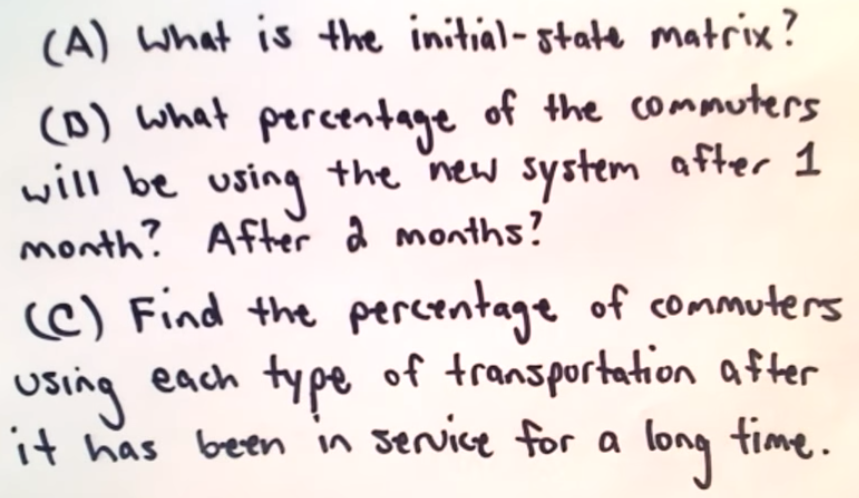 (A) What is the initial-state matrix?
(B) What percentage of the commuters
will be using the new system after 1
month? After 2 months?
(C) Find the percentage of commuters
using each type of transportation after
it has been in service for a long time.